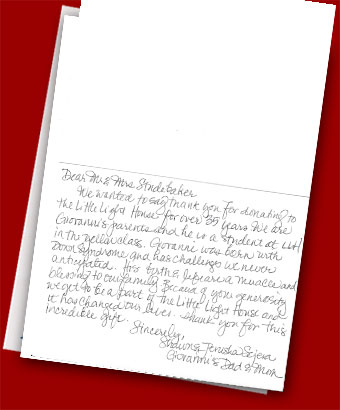 Dear Mr & Mrs Studebaker
We wanted to say thank you for donating to
the Little Light House for over 35 years. We are
Giovanni's parents and he is a student at LLH
in the yellow class. Giovanni was born with
Down Syndrome and has challenges we never
anticipated. His birth & life are a miracle and
blessing to our family. Because of your generosity
we get to be a part of the Little Light House and
it has changed our lives. Thank you for this
incredible gift.
Sincerely,
& Jerusha
Giovanni's Dad & Mom